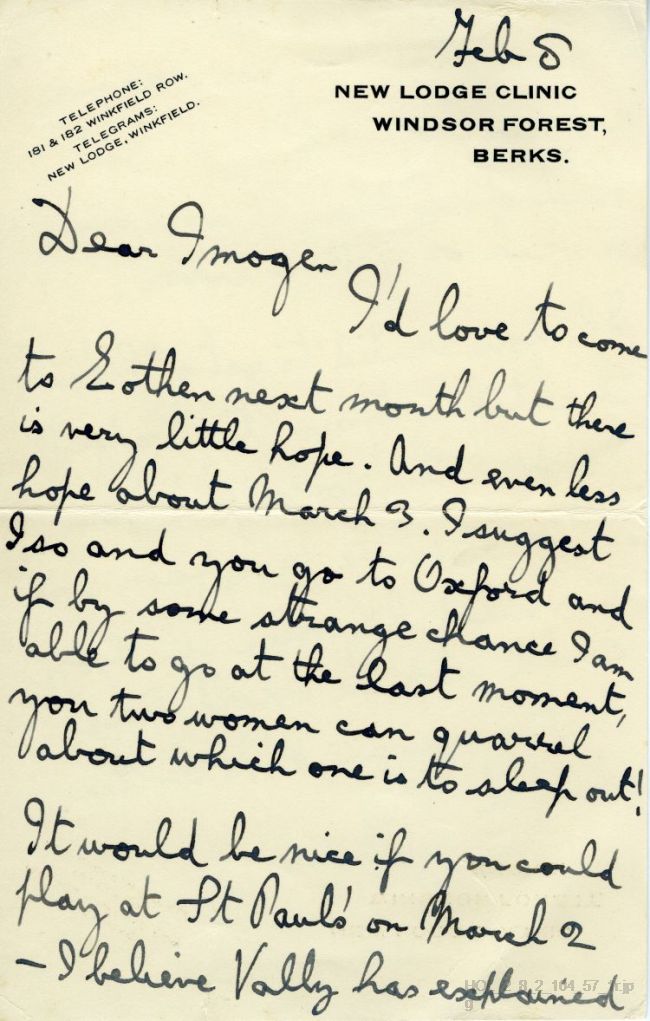 Feb 8
TELEPHONE:
181 & 182 WINKFIELD ROW.
TELEGRAMS:
NEW LODGE, WINKFIELD.
NEW LODGE CLINIC
WINDSOR FOREST,
BERKS.
Dear Imogen
I'd love to come
to Eothen next month but there
is very little hope. And even less
hope about March 3. I suggest
Iso and you go to Oxford and
if by some strange chance I am
able to go at the last moment,
you two women can quarrel
about which one is to sleep out!
It would be nice if you could
play at St Paul's on March 2
– I believe Vally has explained